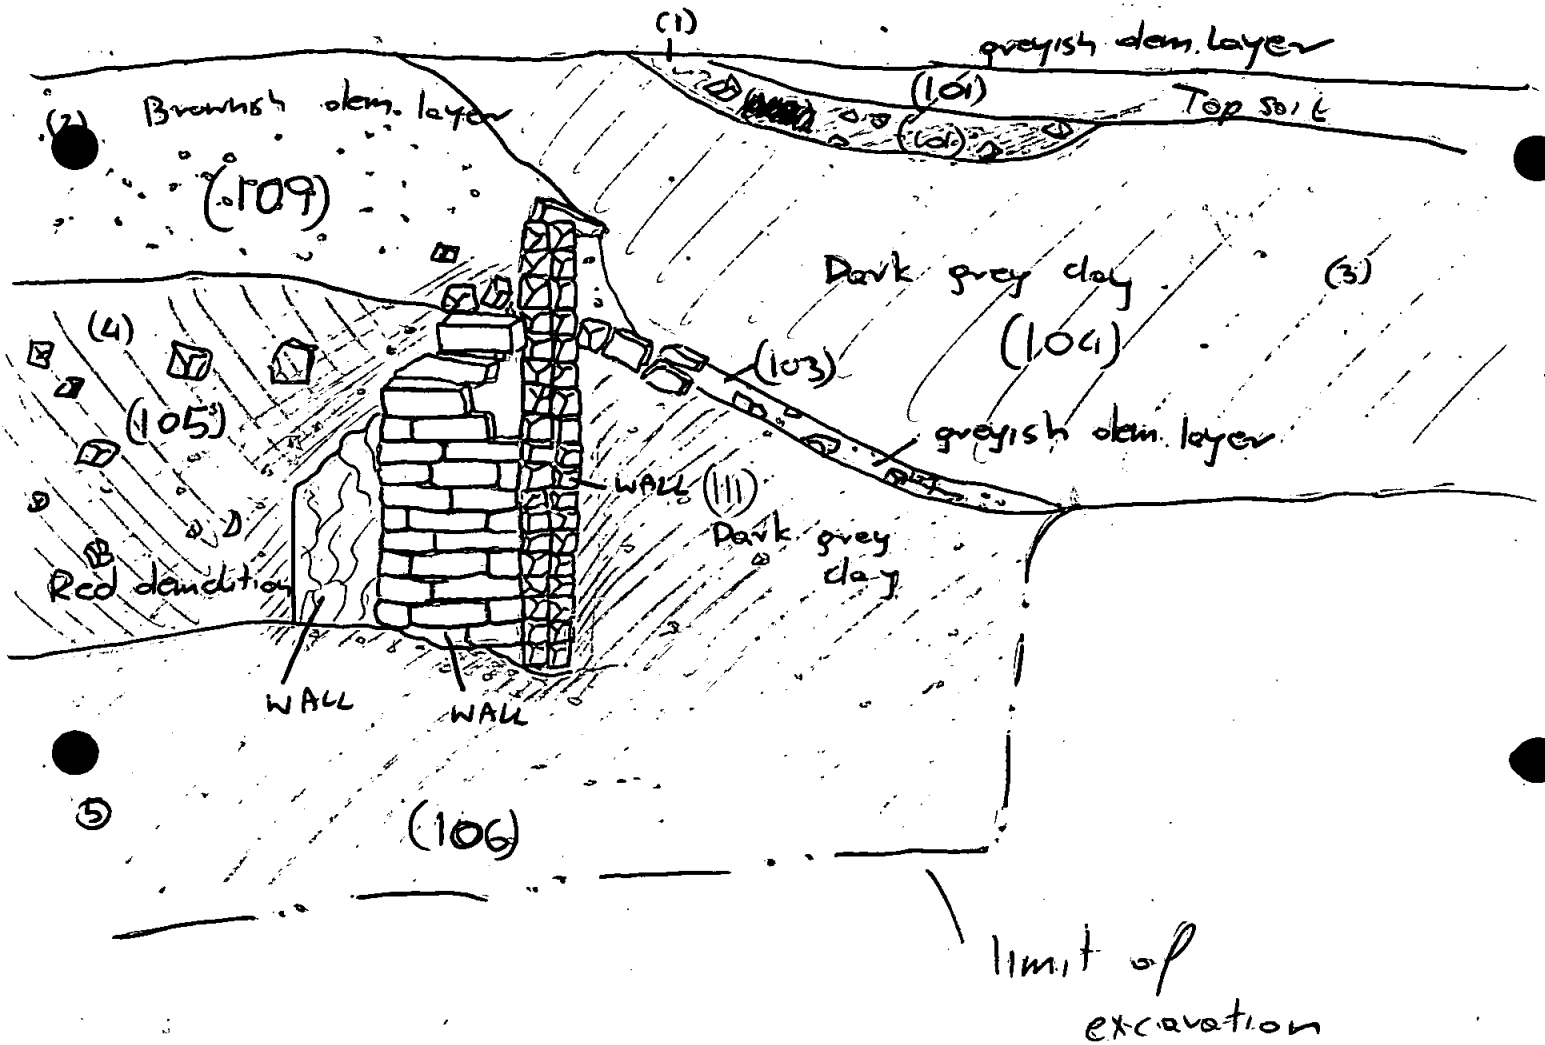 (1)
greyish dem. layer
(101)
Top soil
(2)
Brownish dem. layer
(101)
(109)
Dark grey clay
(3)
(104)
(4)
(103)
(105)
greyish dem. layer
WALL (111)
Dark grey
clay
Red demolition
WALL
WALL
5
(106)
limit of
excavation